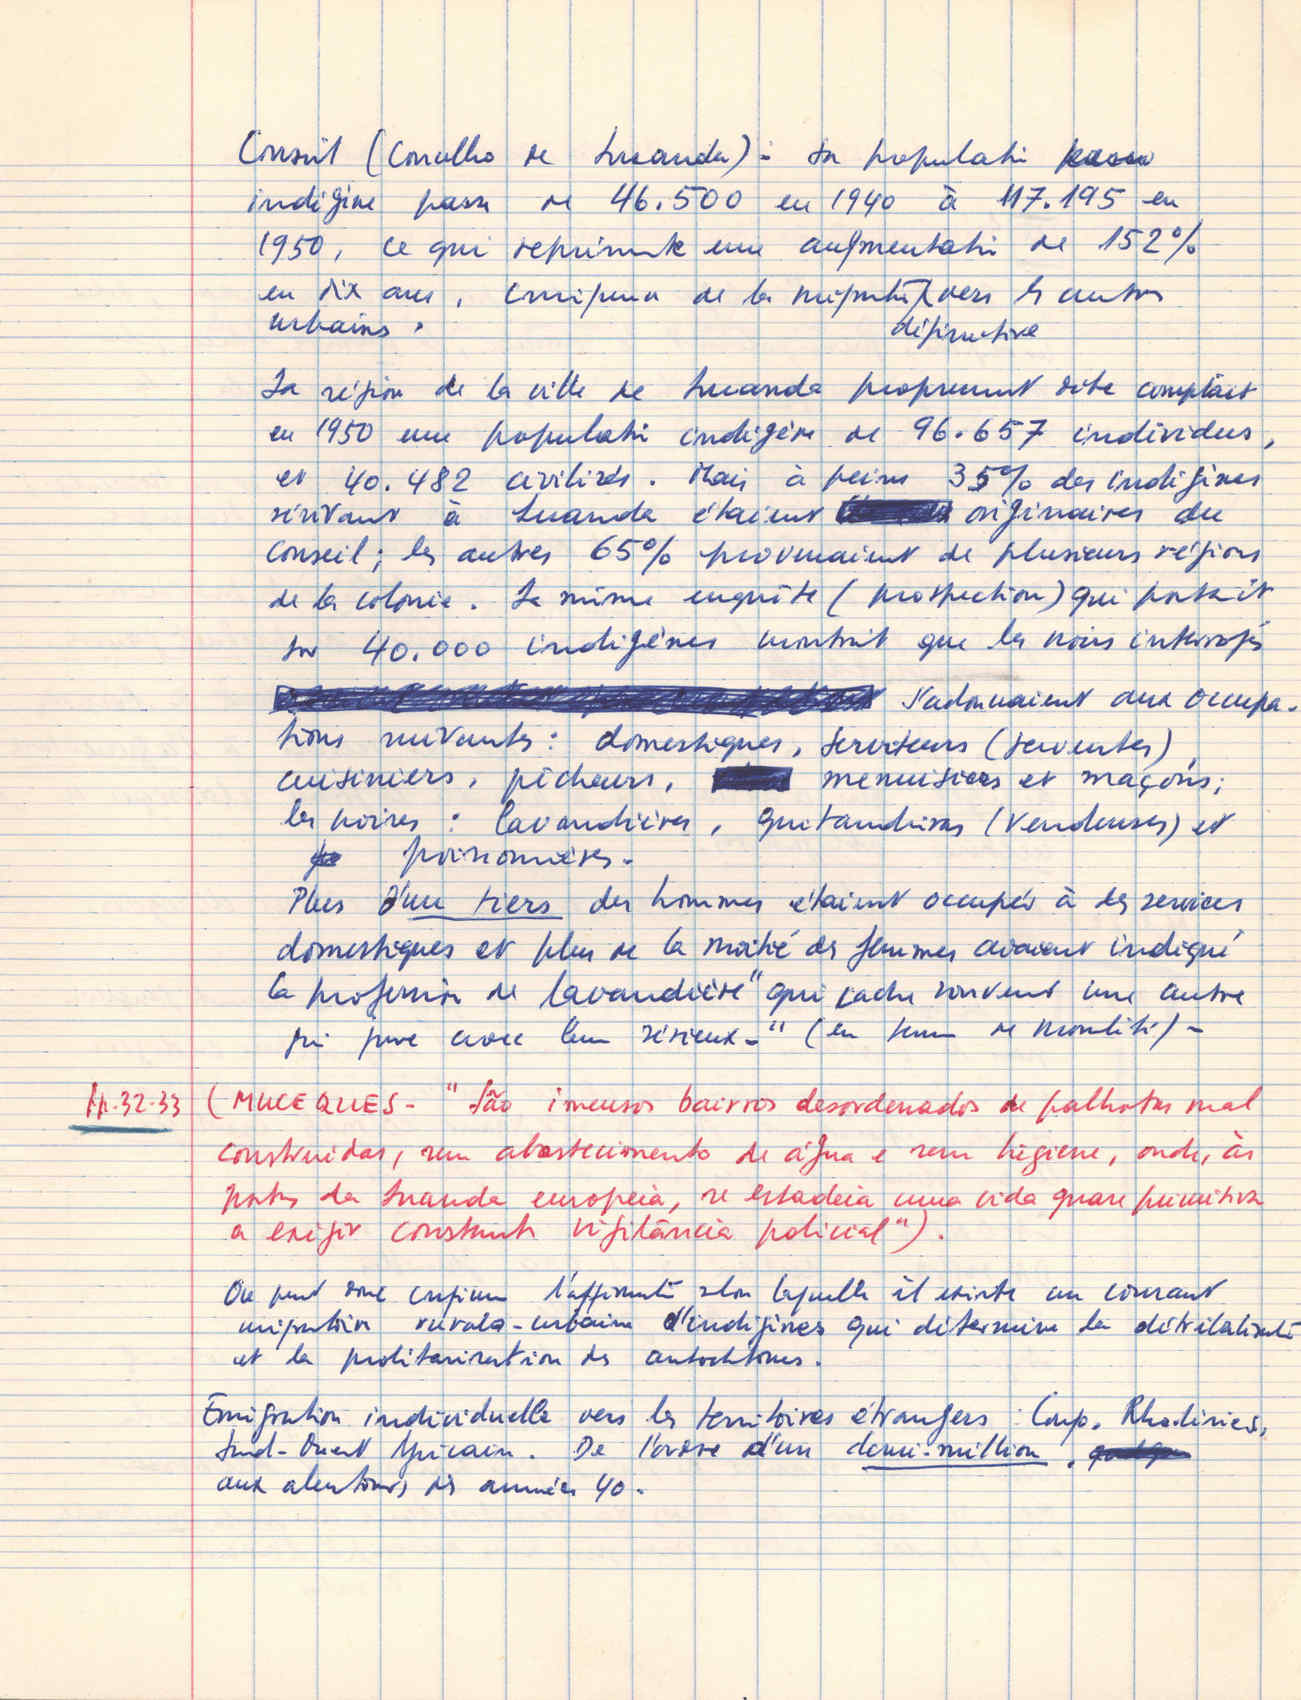 Conseil (Concelho de Luanda): la populati
indigène passe de 46.500 en 1940 à 117.195 en
1950, ce qui représente une augmentati de 152%
en dix ans, de la vers les
urbains.
définitive
La région de la ville de Luanda proprement dite comptait
en 1950 une populati indigène de 96.657 individus,
et 40.482 civilisés. Mais à peine 35% des indigènes
vivant à Luanda étaient originaires du
conseil; les autres 65% provenaient de plusieurs régions
de la colonie. La même enquête (prospection) qui portait
sur 40.000 indigènes montrait que les noirs interrogés
s'adonnaient aux occupa-
tions suivantes: domestiques, serviteurs (serventes),
cuisiniers, pêcheurs, menuisiers et maçons;
les noires: lavandières, quitandeiras (vendeuses) et
poissonnières.
Plus d'un tiers des hommes étaient occupés à des services
domestiques et plus de la moitié des femmes avaient indiqué
la profession de lavandière "qui cache souvent une autre
(en
pp. 32-33
(MUCEQUES - "São imensos bairros desordenados de palhotas mal
construidas, sem abastecimento de água e sem higiene, onde, às
portas da Luanda europeia, se estadeia uma vida quase primitiva
a exigir constante vigilância policial").
On peut donc l'affirmati selon laquelle il existe un courant
migratoire rurale-urbaine d'indigènes qui détermine la détribalisati
et la prolétarisation des autochtones.
Emigration individuelle vers les territoires étrangers: Congo, Rhodésies,
Sud-Ouest Africain. De l'ordre d'un demi-million,
aux alentours des années 40.